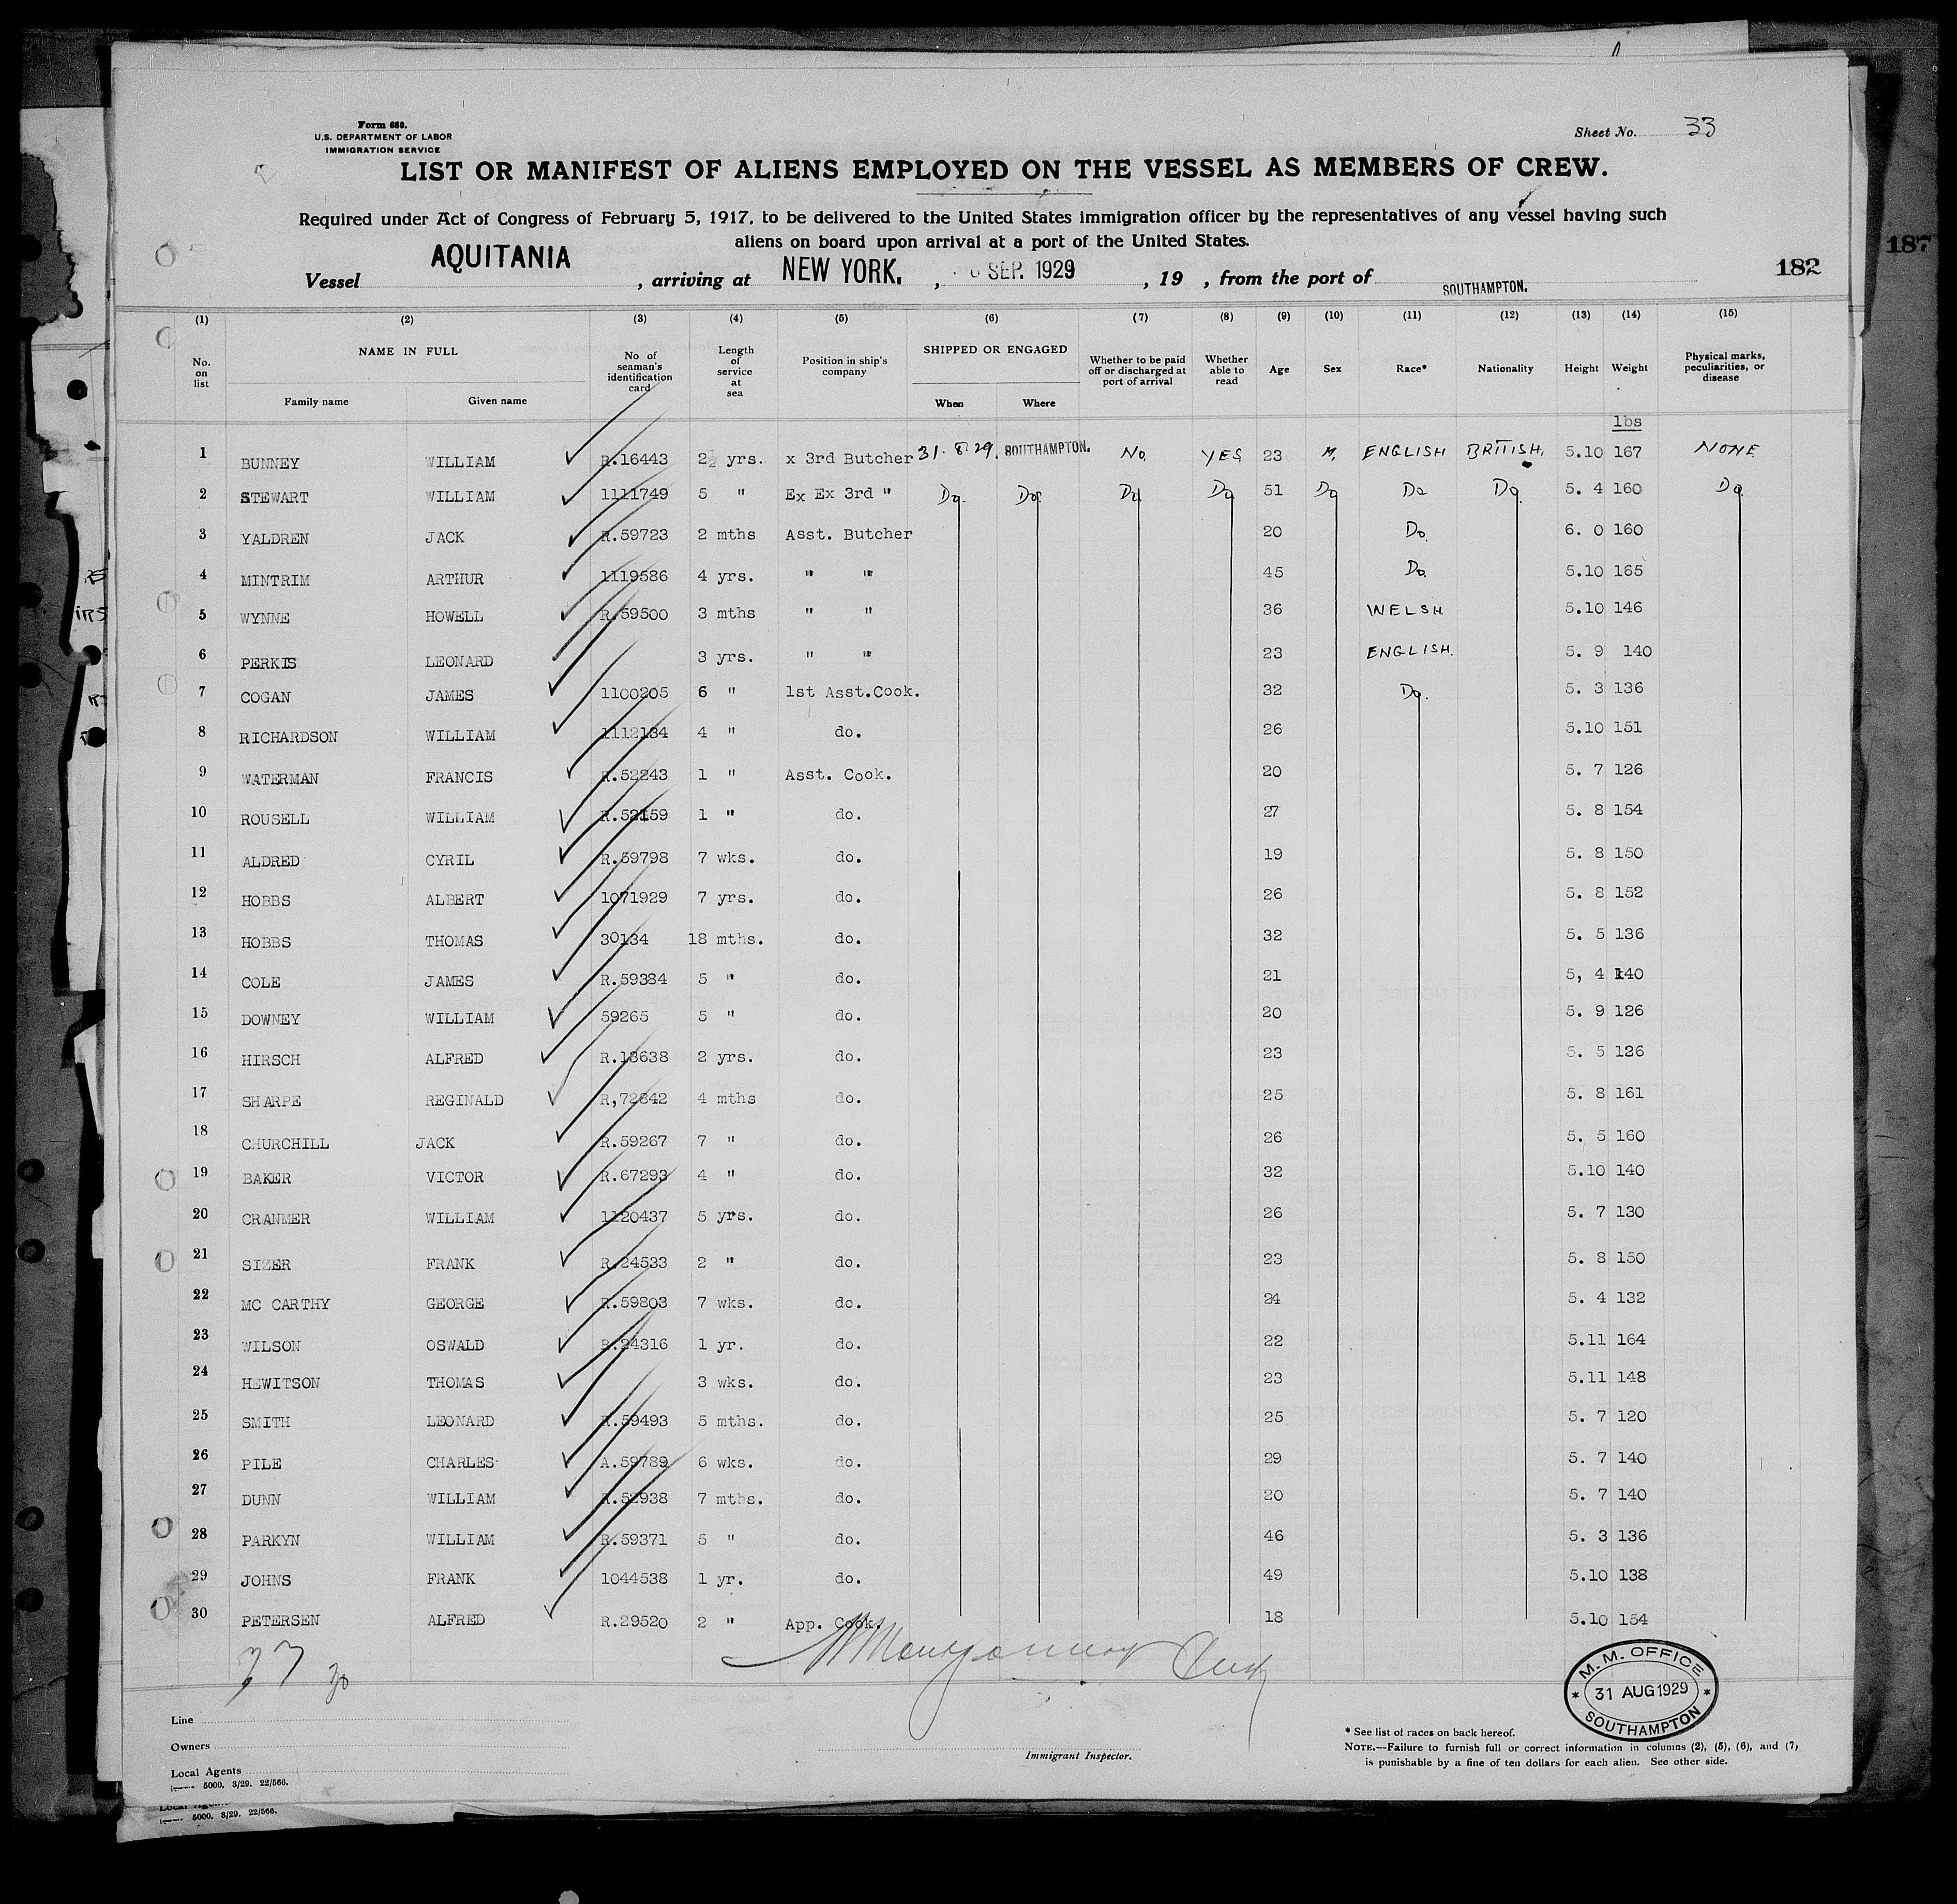 Form 680.
U.S. DEPARTMENT OF LABOR
IMMIGRATION SERVICE
Sheet No. 33
LIST OR MANIFEST OF ALIENS EMPLOYED ON THE VESSEL AS MEMBERS OF CREW.
Required under Act of Congress of February 5, 1917, to be delivered to the United States immigration officer by the representatives of any vessel having such
aliens on board upon arrival at a port of the United States.
Vessel AQUITANIA, arriving at NEW YORK., SEP. 1929, 19 , from the port of SOUTHAMPTON.
182
187
(1) (2) (3) (4) (5) (6) (7) (8) (9) (10) (11) (12) (13) (14) (15)
No. on list NAME IN FULL Family name Given name No. of seaman's identification card Length of service at sea Position in ship's company SHIPPED OR ENGAGED When Where Whether to be paid off or discharged at port of arrival Whether able to read Age Sex Race* Nationality Height Weight Physical marks, peculiarities, or disease
lbs
1 BUNNEY WILLIAM R.16443 2½ yrs. x 3rd Butcher 31. 8 29. SOUTHAMPTON. No. YES 23 M. ENGLISH BRITISH. 5.10 167 NONE
2 STEWART WILLIAM 1111749 5 " Ex Ex 3rd " Do. Do. Do Do 51 Do Do Do. 5. 4 160 Do.
3 YALDREN JACK R.59723 2 mths Asst. Butcher 20 Do. 6. 0 160
4 MINTRIM ARTHUR 1119586 4 yrs. " " 45 Do. 5.10 165
5 WYNNE HOWELL R.59500 3 mths " " 36 WELSH 5.10 146
6 PERKIS LEONARD 3 yrs. " " 23 ENGLISH. 5. 9 140
7 COGAN JAMES 1100205 6 " 1st Asst.Cook. 32 Do. 5. 3 136
8 RICHARDSON WILLIAM 1112134 4 " do. 26 5.10 151
9 WATERMAN FRANCIS R.52243 1 " Asst. Cook. 20 5. 7 126
10 ROUSELL WILLIAM R.52159 1 " do. 27 5. 8 154
11 ALDRED CYRIL R.59798 7 wks. do. 19 5. 8 150
12 HOBBS ALBERT 1071929 7 yrs. do. 26 5. 8 152
13 HOBBS THOMAS 30134 18 mths. do. 32 5. 5 136
14 COLE JAMES R.59384 5 " do. 21 5, 4 140
15 DOWNEY WILLIAM 59265 5 " do. 20 5. 9 126
16 HIRSCH ALFRED R.18638 2 yrs. do. 23 5. 5 126
17 SHARPE REGINALD R,72842 4 mths do. 25 5. 8 161
18 CHURCHILL JACK R.59267 7 " do. 26 5. 5 160
19 BAKER VICTOR R.67293 4 " do. 32 5.10 140
20 CRANMER WILLIAM 1120437 5 yrs. do. 26 5. 7 130
21 SIZER FRANK R.24533 2 " do. 23 5. 8 150
22 MC CARTHY GEORGE R.59803 7 wks. do. 24 5. 4 132
23 WILSON OSWALD R.24316 1 yr. do. 22 5.11 164
24 HEWITSON THOMAS 3 wks. do. 23 5.11 148
25 SMITH LEONARD R.59493 5 mths. do. 25 5. 7 120
26 PILE CHARLES A.59789 6 wks. do. 29 5. 7 140
27 DUNN WILLIAM R.52938 7 mths. do. 20 5. 7 140
28 PARKYN WILLIAM R.59371 5 " do. 46 5. 3 136
29 JOHNS FRANK 1044538 1 yr. do. 49 5.10 138
30 PETERSEN ALFRED R.29520 2 " App. Cook. 18 5.10 154
30
M. M. OFFICE
31 AUG 1929
SOUTHAMPTON
Line
Owners
Local Agents
5000. 3/29. 22/566.
Immigrant Inspector.
* See list of races on back hereof.
NOTE.—Failure to furnish full or correct information in columns (2), (5), (6), and (7)
is punishable by a fine of ten dollars for each alien. See other side.
5000. 3/29. 22/566.